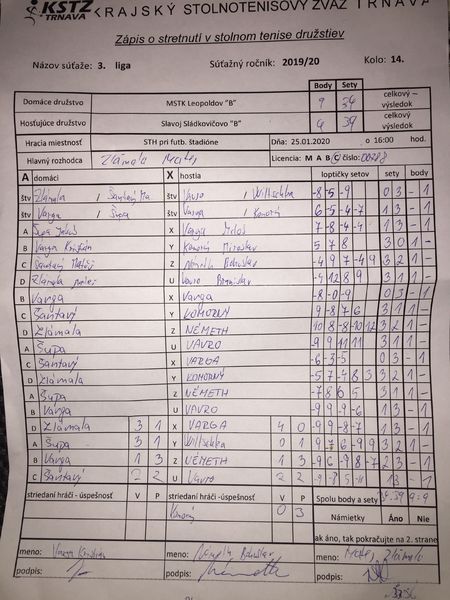 KSTZ TRNAVA KRAJSKÝ STOLNOTENISOVÝ ZVÄZ TRNAVA
Zápis o stretnutí v stolnom tenise družstiev
Názov súťaže: 3. liga Súťažný ročník: 2019/20 Kolo: 14.
Body Sety
Domáce družstvo MSTK Leopoldov "B" 9 34 celkový – výsledok
Hosťujúce družstvo Slavoj Sládkovičovo "B" 9 39 celkový výsledok
Hracia miestnosť STH pri futb. štadióne Dňa: 25.01.2020 o 16:00 hod.
Hlavný rozhodca Zlámala Matej Licencia: M A B C číslo:
A domáci X hostia loptičky setov sety body
štv Zlámala / štv Vavro / Willschka -8-5-9 0 3 - 1
štv Varga / Šupa štv Varga / Komorný 6-5-4-7 1 3 - 1
A X Varga Miloš 7-8-4-4 1 3 - 1
B Varga Kristián Y Komorný Miroslav 5 7 8 3 0 1 -
C Z Németh Bohuslav -4 9 7-4 9 3 2 1 -
D U Vavro -4 12 8 9 3 1 1 -
B Varga X Varga -8-0-9 0 3 - 1
C Šantavý Y KOMORNÝ 9-8 7 6 3 1 1 -
D Zlámala Z NÉMETH 10 8-8-10 12 3 2 1 -
A Šupa U VAVRO -9 9 11 11 3 1 1 -
C Šantavý X VARGA -6-3-5 0 3 - 1
D Zlámala Y KOMORNÝ -5 7-4 8 3 3 2 1 -
A Šupa Z NÉMETH -7 8 6 5 3 1 1 -
B Varga U VAVRO -9 9-9-6 1 3 - 1
D Zlámala 3 1 X VARGA 4 0 -9 9-8-7 1 3 - 1
A Šupa 3 1 Y Willschka 0 1 9-7 6-9 9 3 2 1 -
B Varga 1 3 Z NÉMETH 1 3 -9 6-9 8-7 2 3 - 1
C Šantavý 2 2 U Vavro 2 2 1 3 - 1
striedaní hráči - úspešnosť V P striedaní hráči -úspešnosť V P Spolu body a sety 34:39 9:9
Komorný 0 3 Námietky Áno Nie
ak áno, tak pokračujte na 2. strane
meno: Varga Kristián meno: Németh Bohuslav meno: Matej Zlámala
podpis: podpis: podpis: